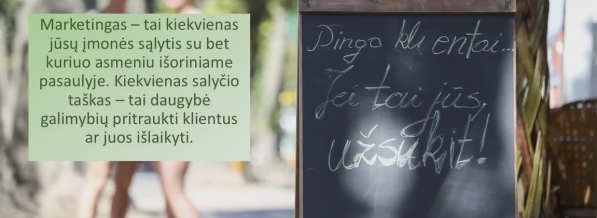 Marketingas – tai kiekvienas
jūsų įmonės sąlytis su bet
kuriuo asmeniu išoriniame
pasaulyje. Kiekvienas salyčio
taškas – tai daugybė
galimybių pritraukti klientus
ar juos išlaikyti.
Dingo klientai...
Jei tai jūs,
užsukit!